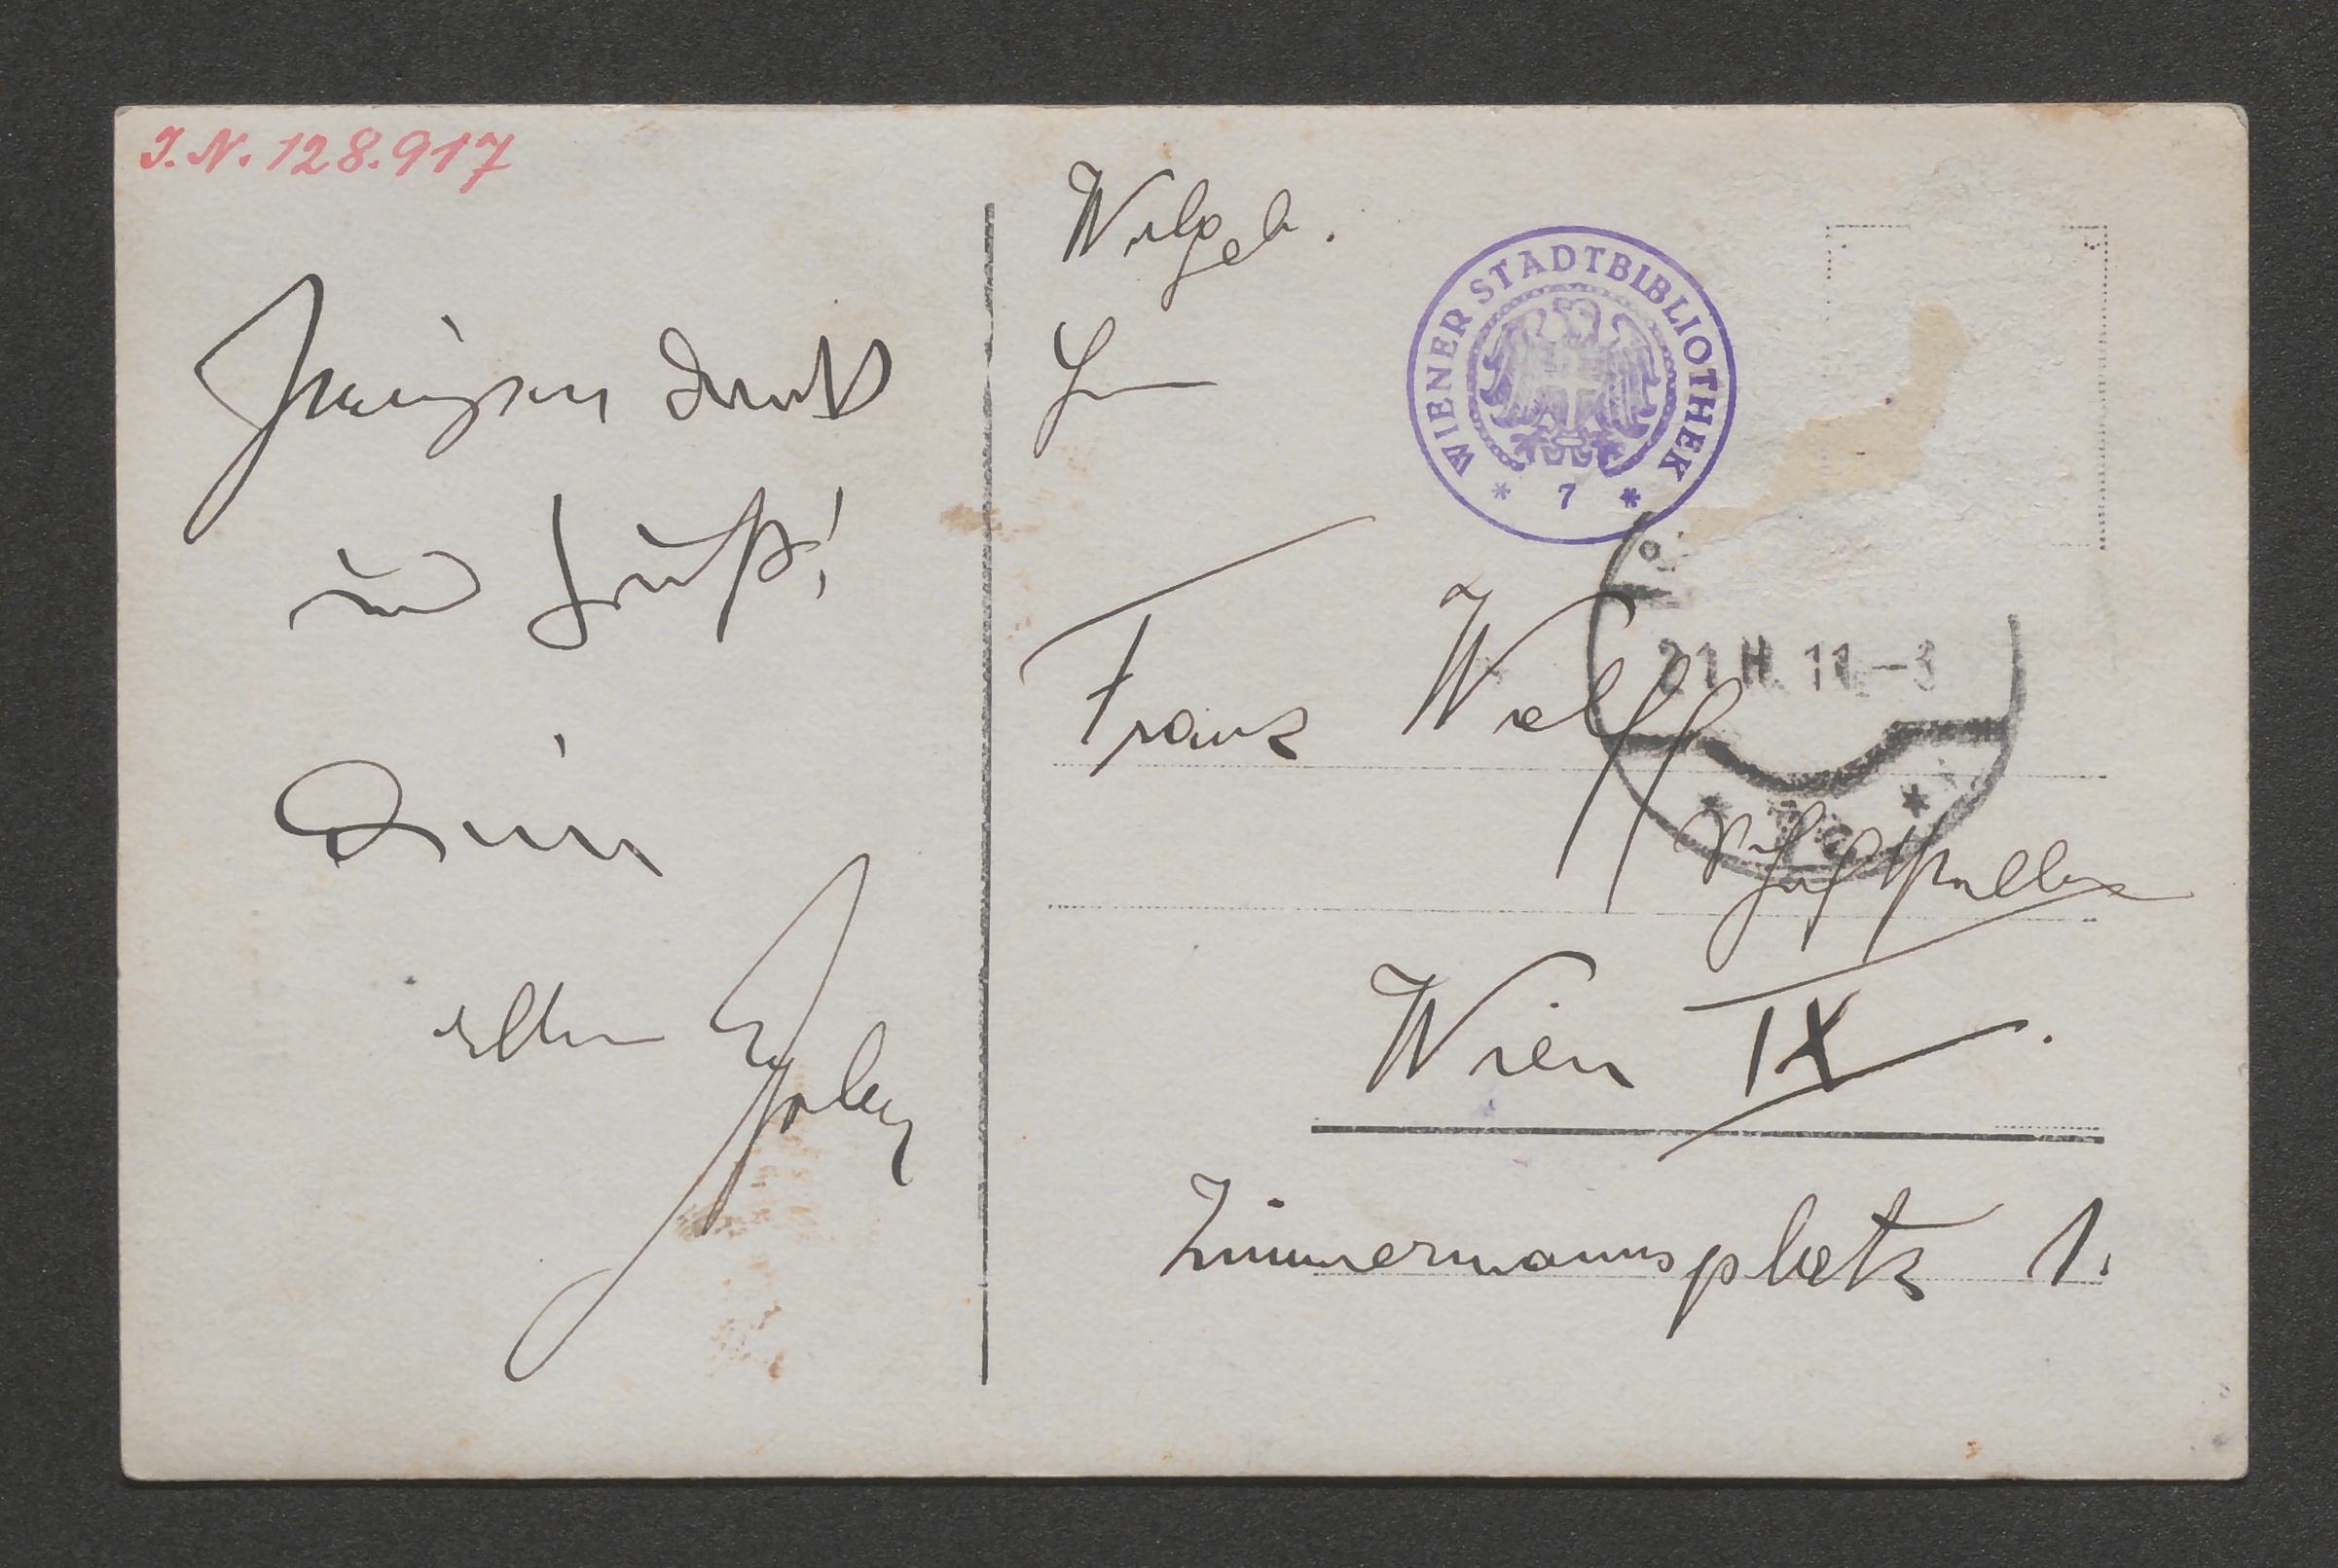 I.N. 128.917
Innigsten Dank
und Gruß!
Dein
alter
Wolgeb.
Herrn
WIENER STADTBIBLIOTHEK
* 7 *
21.II.11.-3
Franz Wolff
Schriftsteller
Wien IX.
Zimmermannsplatz 1.